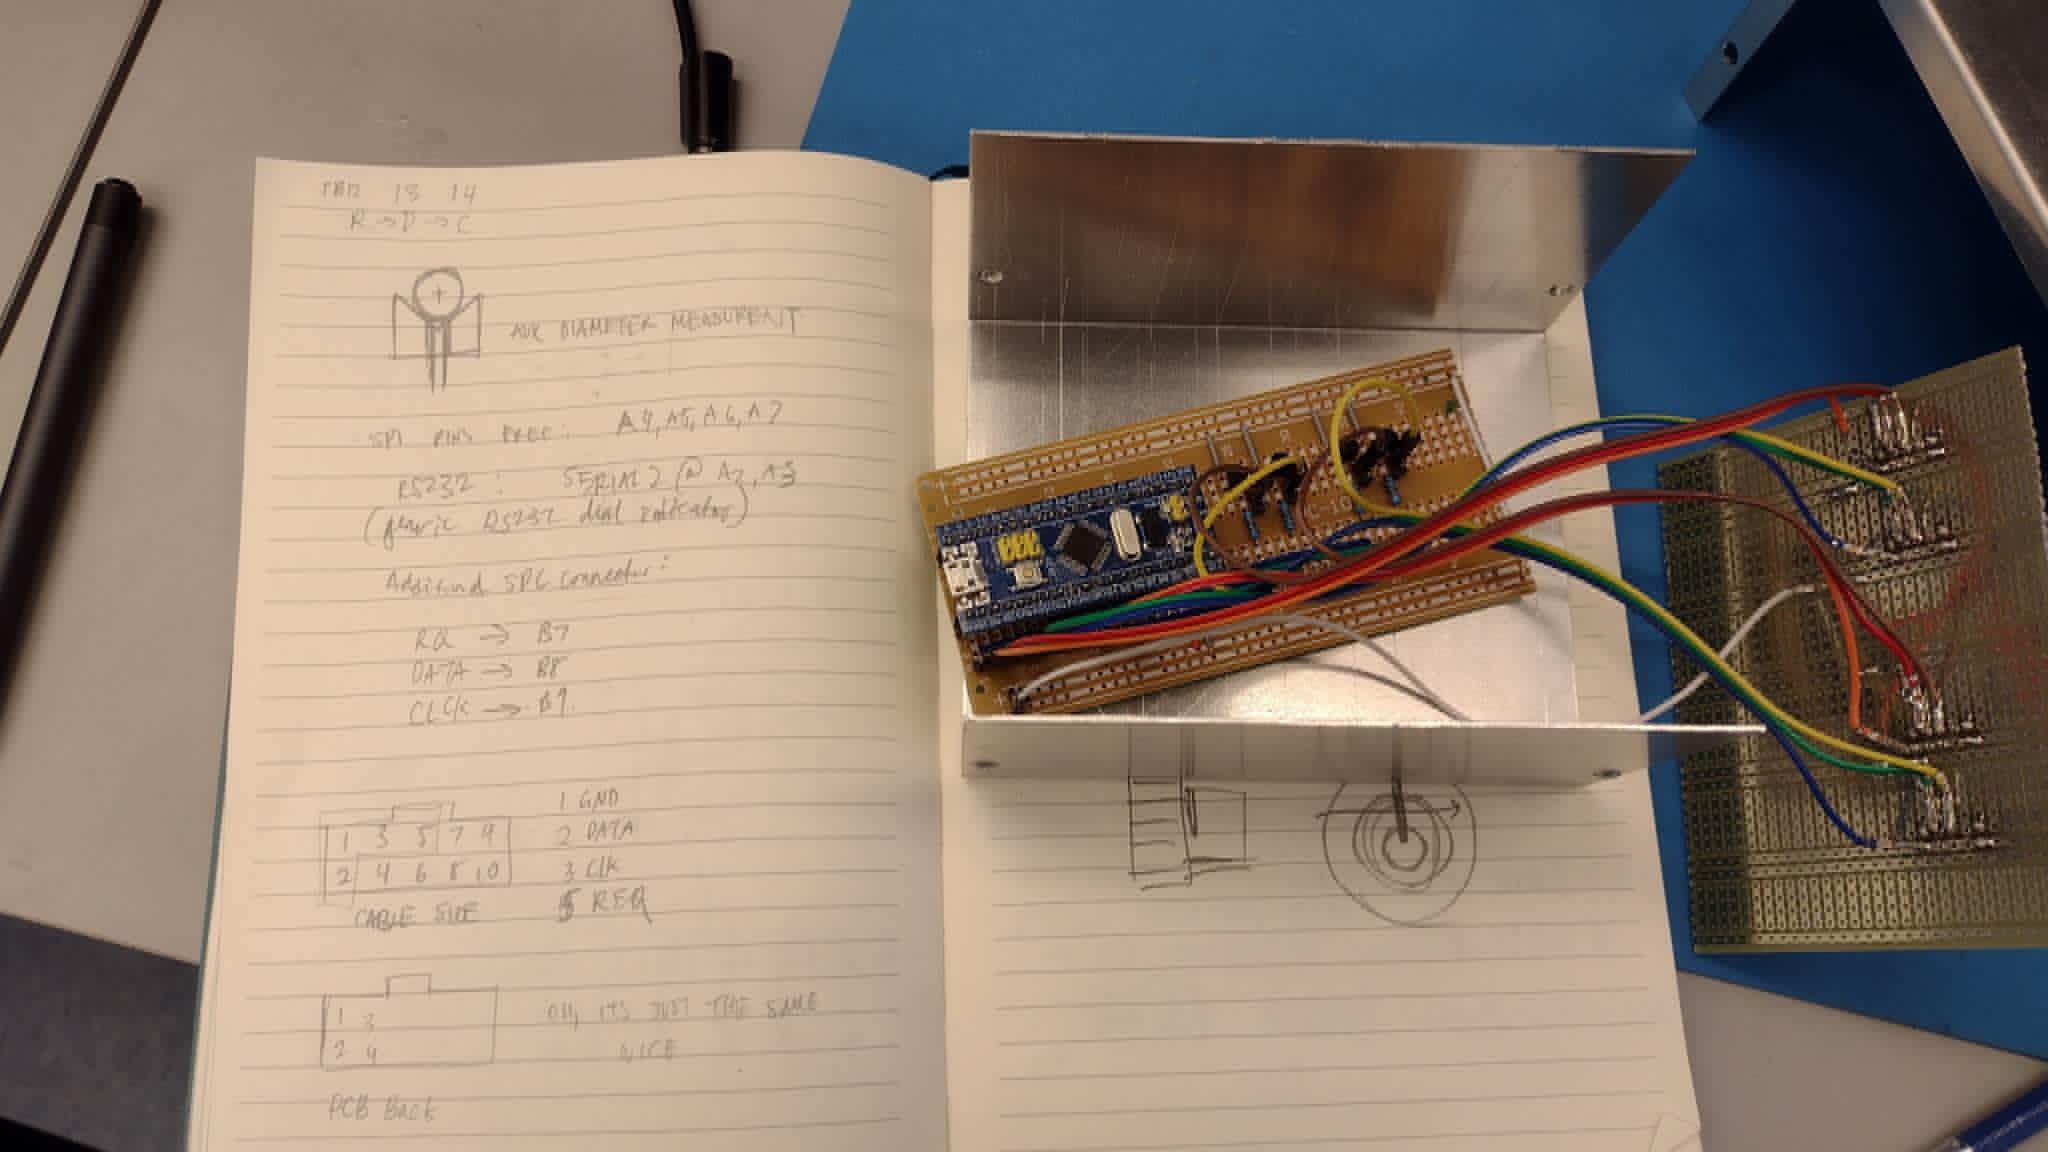 13 14
R → D → C
DIAMETER MEASUREMENT
SPI PINS FREE: A4, A5, A6, A7
RS232: SERIAL2 @ A2, A3
(generic RS232 dial indicator)
Additional SPC connector:
RQ → B7
DATA → B8
CLCK → B9.
1 3 5 7 9
2 4 6 8 10
CABLE SIDE
1 GND
2 DATA
3 Clk
5 REQ
1 3
2 4
OH, ITS JUST THE SAME
NICE
PCB Back